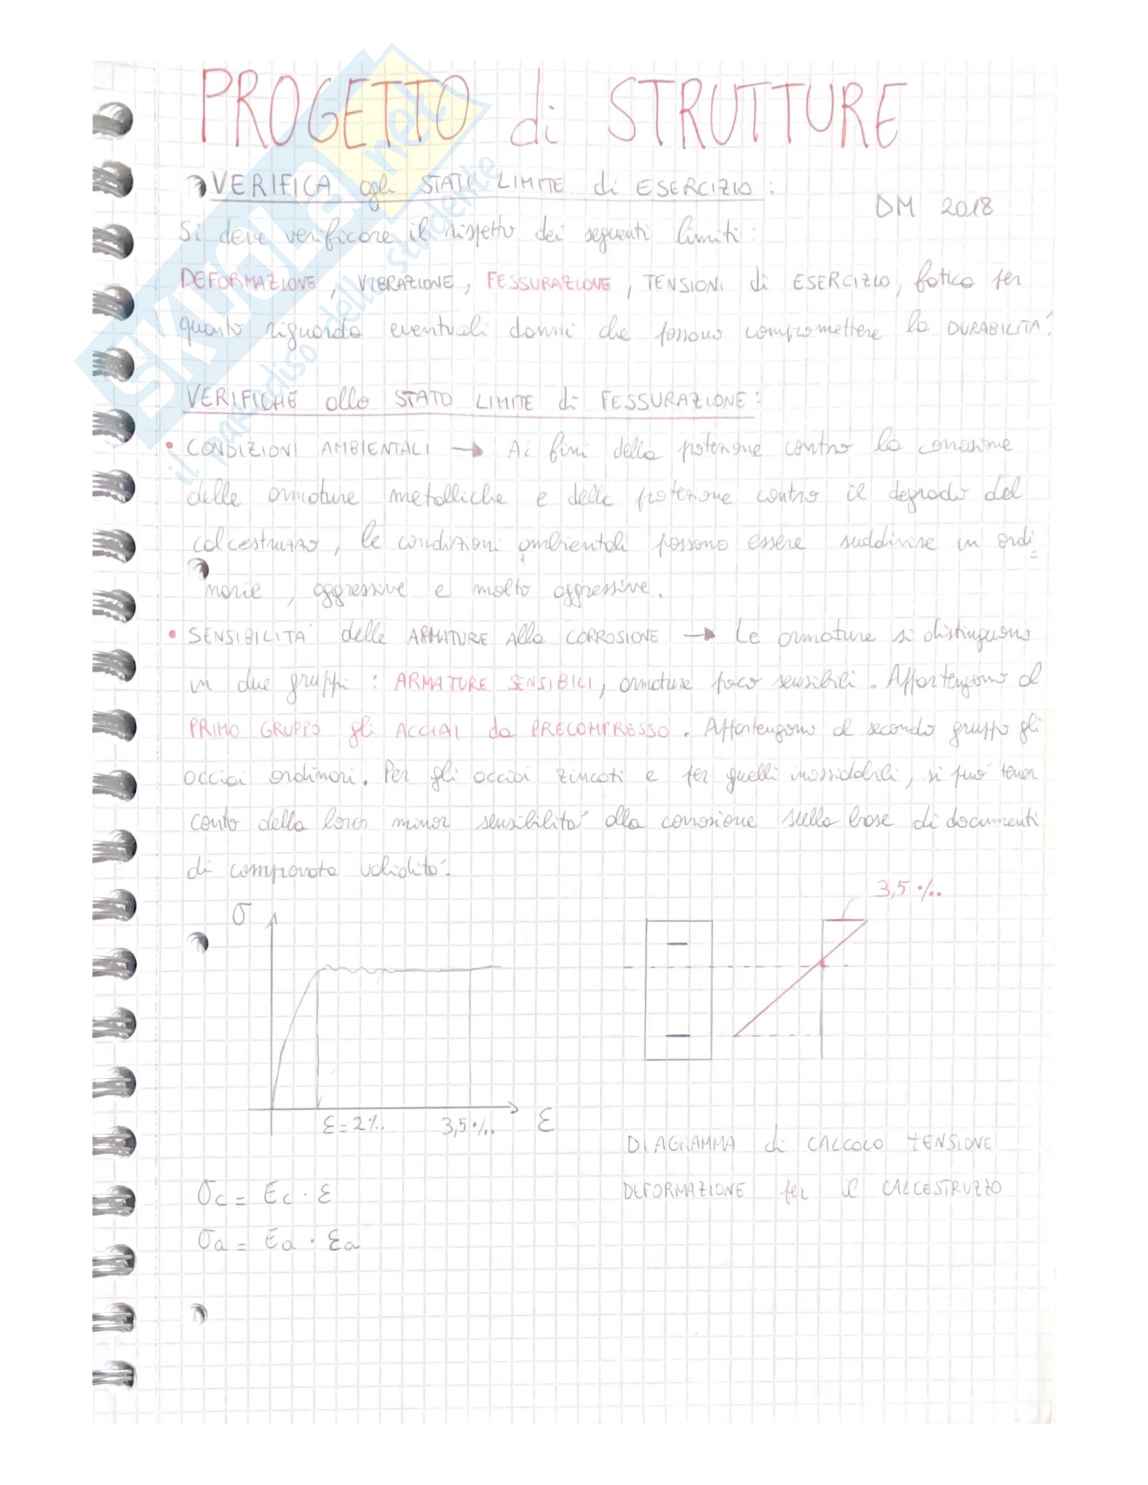 PROGETTO di STRUTTURE
VERIFICA agli STATI LIMITE di ESERCIZIO :
DM 2018
Si deve verificare il rispetto dei seguenti limiti :
DEFORMAZIONE , VIBRAZIONE , FESSURAZIONE , TENSIONI di ESERCIZIO, fatica per
quanto riguarda eventuali danni che possono compromettere la DURABILITA'.
VERIFICHE allo STATO LIMITE di FESSURAZIONE :
• CONDIZIONI AMBIENTALI → Ai fini della protezione contro la corrosione
delle armature metalliche e della protezione contro il degrado del
calcestruzzo , le condizioni ambientali possono essere suddivise in ordi
narie , aggressive e molto aggressive.
• SENSIBILITA' delle ARMATURE alla CORROSIONE → Le armature si distinguono
in due gruppi : ARMATURE SENSIBILI, armature poco sensibili . Appartengono al
PRIMO GRUPPO gli ACCIAI da PRECOMPRESSO . Appartengono al secondo gruppo gli
acciai ordinari. Per gli acciai zincati e per quelli inossidabili, si puo' tener
conto della loro minor sensibilita' alla corrosione sulla base di documenti
di comprovata validita'.
3,5 ‰
σ
ε = 2‰
3,5 ‰
ε
DIAGRAMMA di CALCOLO TENSIONE
DEFORMAZIONE per il CALCESTRUZZO
σc = Ec · ε
σa = Ea · εa
SKUOLA.net
il paradiso dello studente